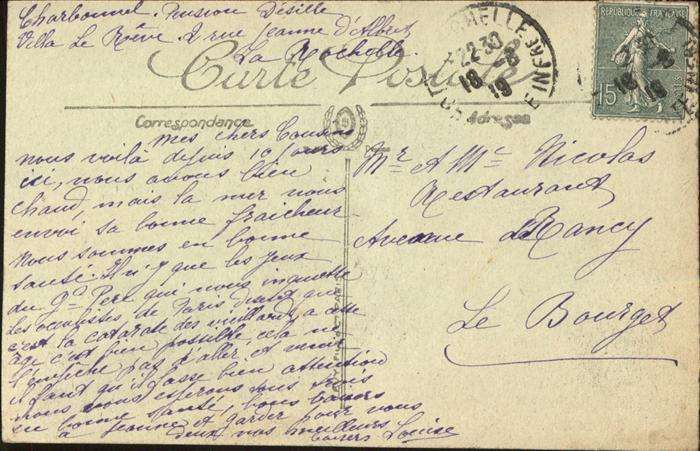 Charbonnel. Pension Désille
Villa Le Rêve. 2 rue Jeanne d'Albret
La Rochelle.
Carte Postale
Correspondance
Adresse
RÉPUBLIQUE FRANÇAISE
15
POSTES
22 30
18 -8
19
mes chers Cousins
nous voilà depuis 10 jours
ici, nous avons bien
chaud, mais la mer nous
envoi sa bonne fraicheur
Nous sommes en bonne
santé. Il n'y que les yeux
du gd Père qui nous inquiette
les oculistes de Paris disent que
c'est la catarate des vieillards, a cette
âge c'est bien possible, cela ne
l'empêche pas d'aller et venir
il faut qu'il fasse bien attention
nous vous espérons tous trois
en bonne santé, bons baisers
a Jeanne et garder pour vous
deux nos meilleurs
baisers Louise
Mr et Me Nicolas
Restaurant
Avenue de Nancy
Le Bourget